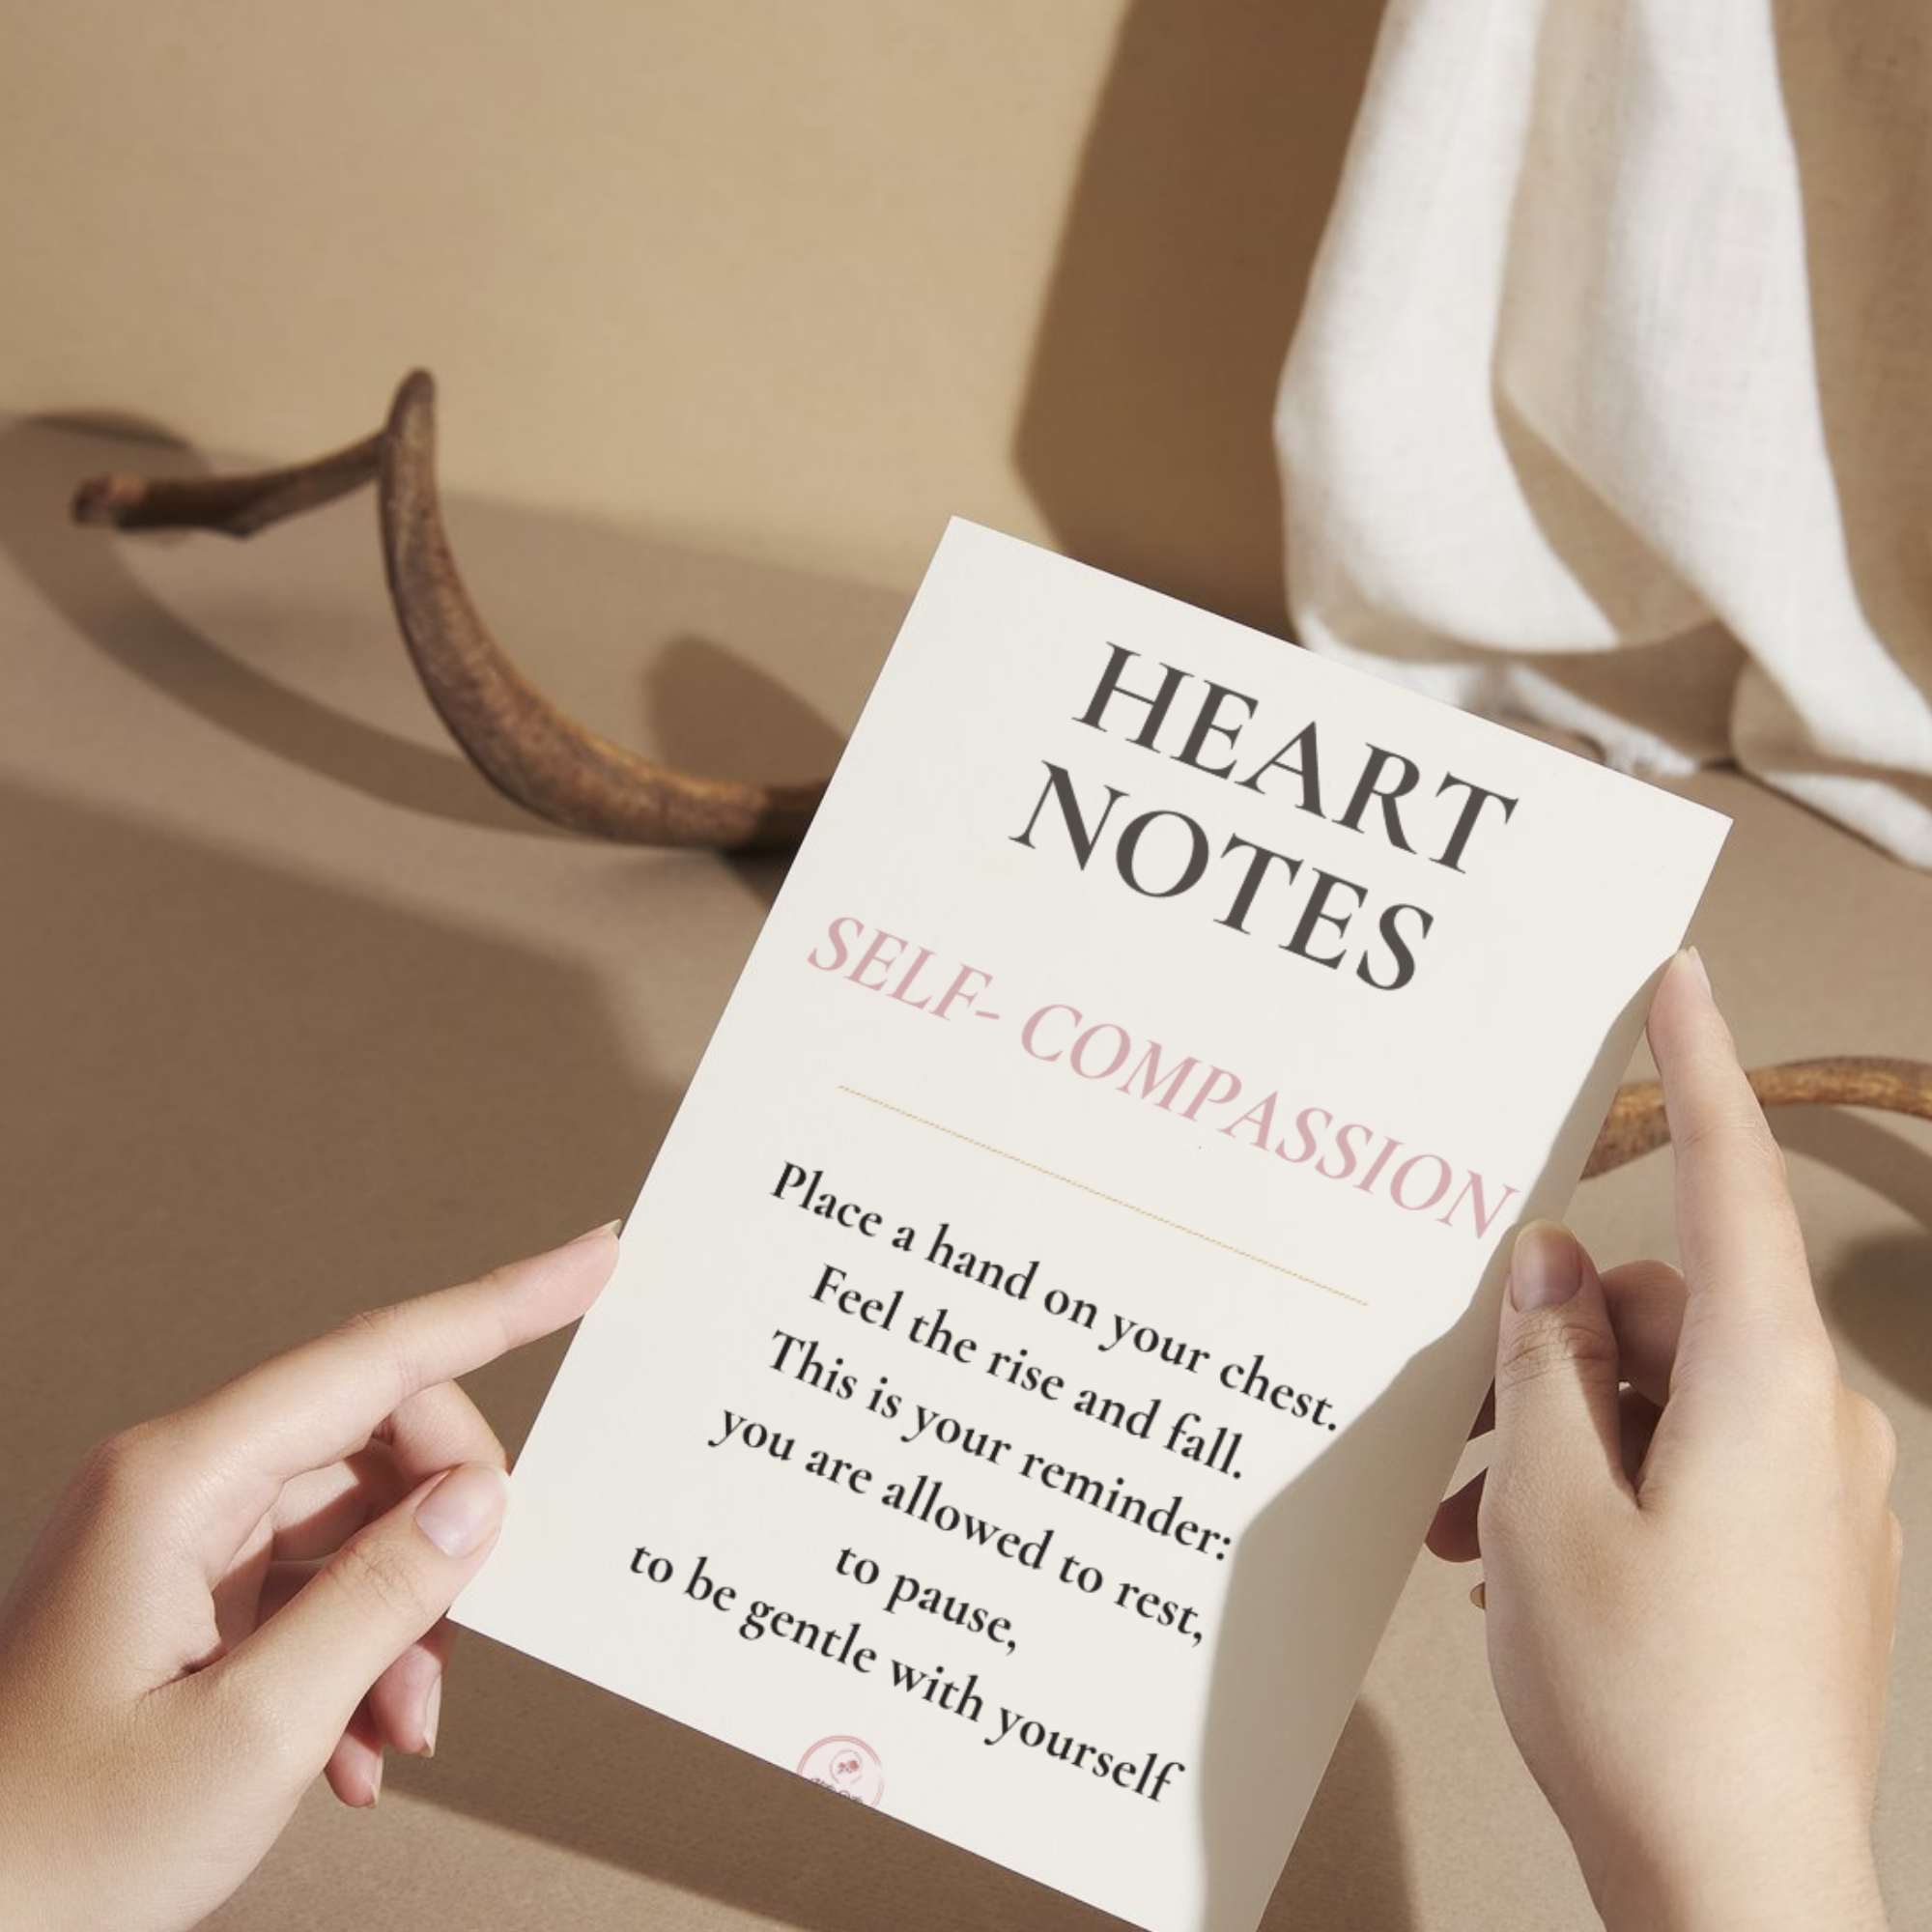 HEART
NOTES
SELF- COMPASSION
Place a hand on your chest.
Feel the rise and fall.
This is your reminder:
you are allowed to rest,
to pause,
to be gentle with yourself